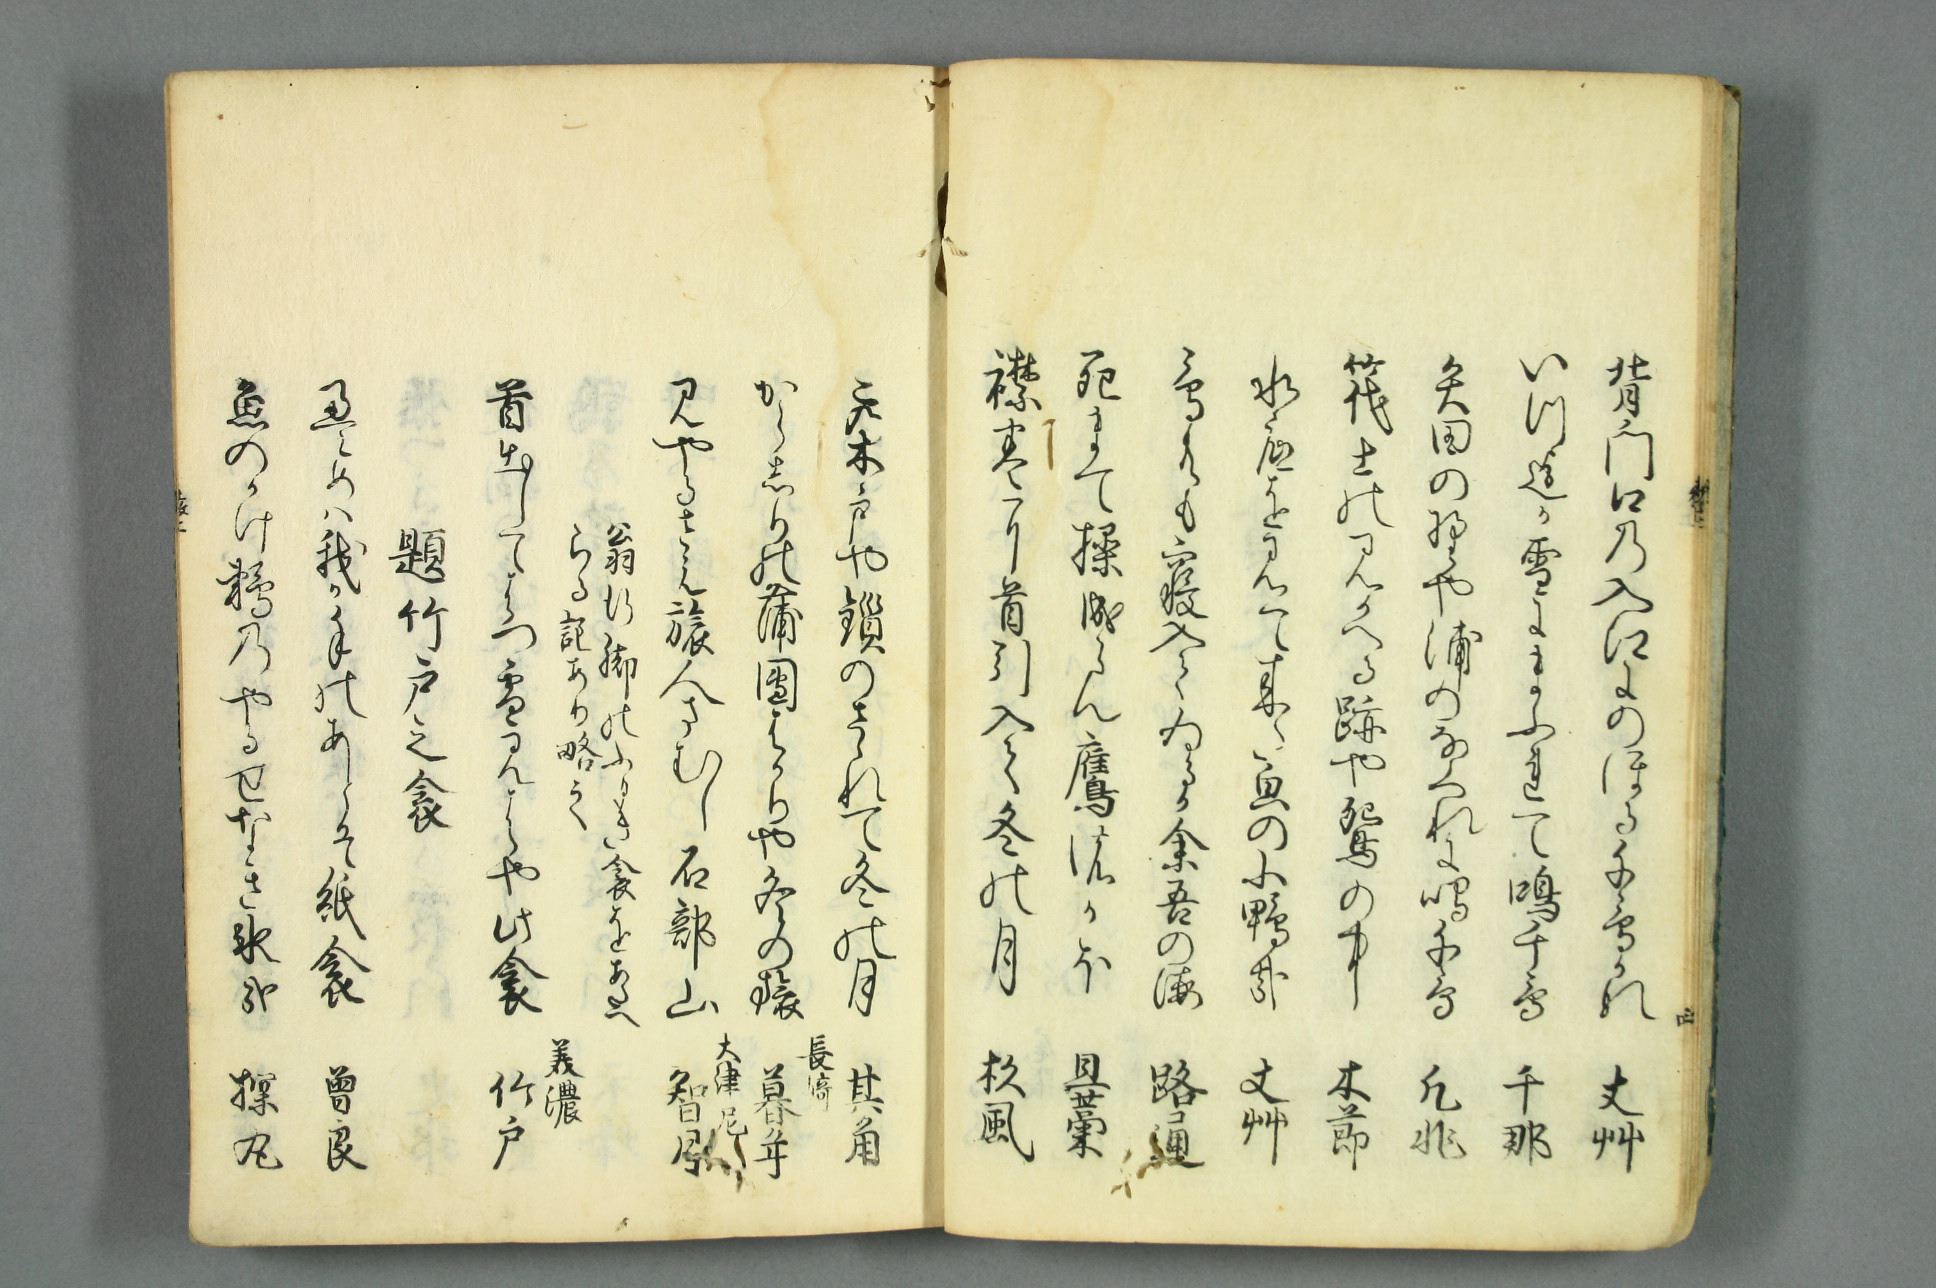 背門口の入江にのほる千鳥かな 丈艸
いつ迄か雪にまふれて鳴千鳥 千那
矢田の野や浦のなくれに鳴千鳥 凡兆
筏士の見かへる跡や鴛の中 木節
水底を見て来た皃の小鴨哉 丈艸
鳥共も寝入てゐるか余吾の海 路通
死まて操成らん鷹のかほ 旦藁
襟巻に首引入て冬の月 杉風
この木戸や鎖のさゝれて冬の月 其角
からしりの蒲團はかりや冬の旅 長﨑 暮年
見やるさえ旅人さむし石部山 大津尼 智月
翁行脚のふるき衾をあたへ
らる記あり略之
首出してはつ雪見はや此衾 義濃 竹戸
題竹戸之衾
畳めは我か手のあとそ紙衾 曽良
魚のかけ鵜のやるせなき氷哉 探丸